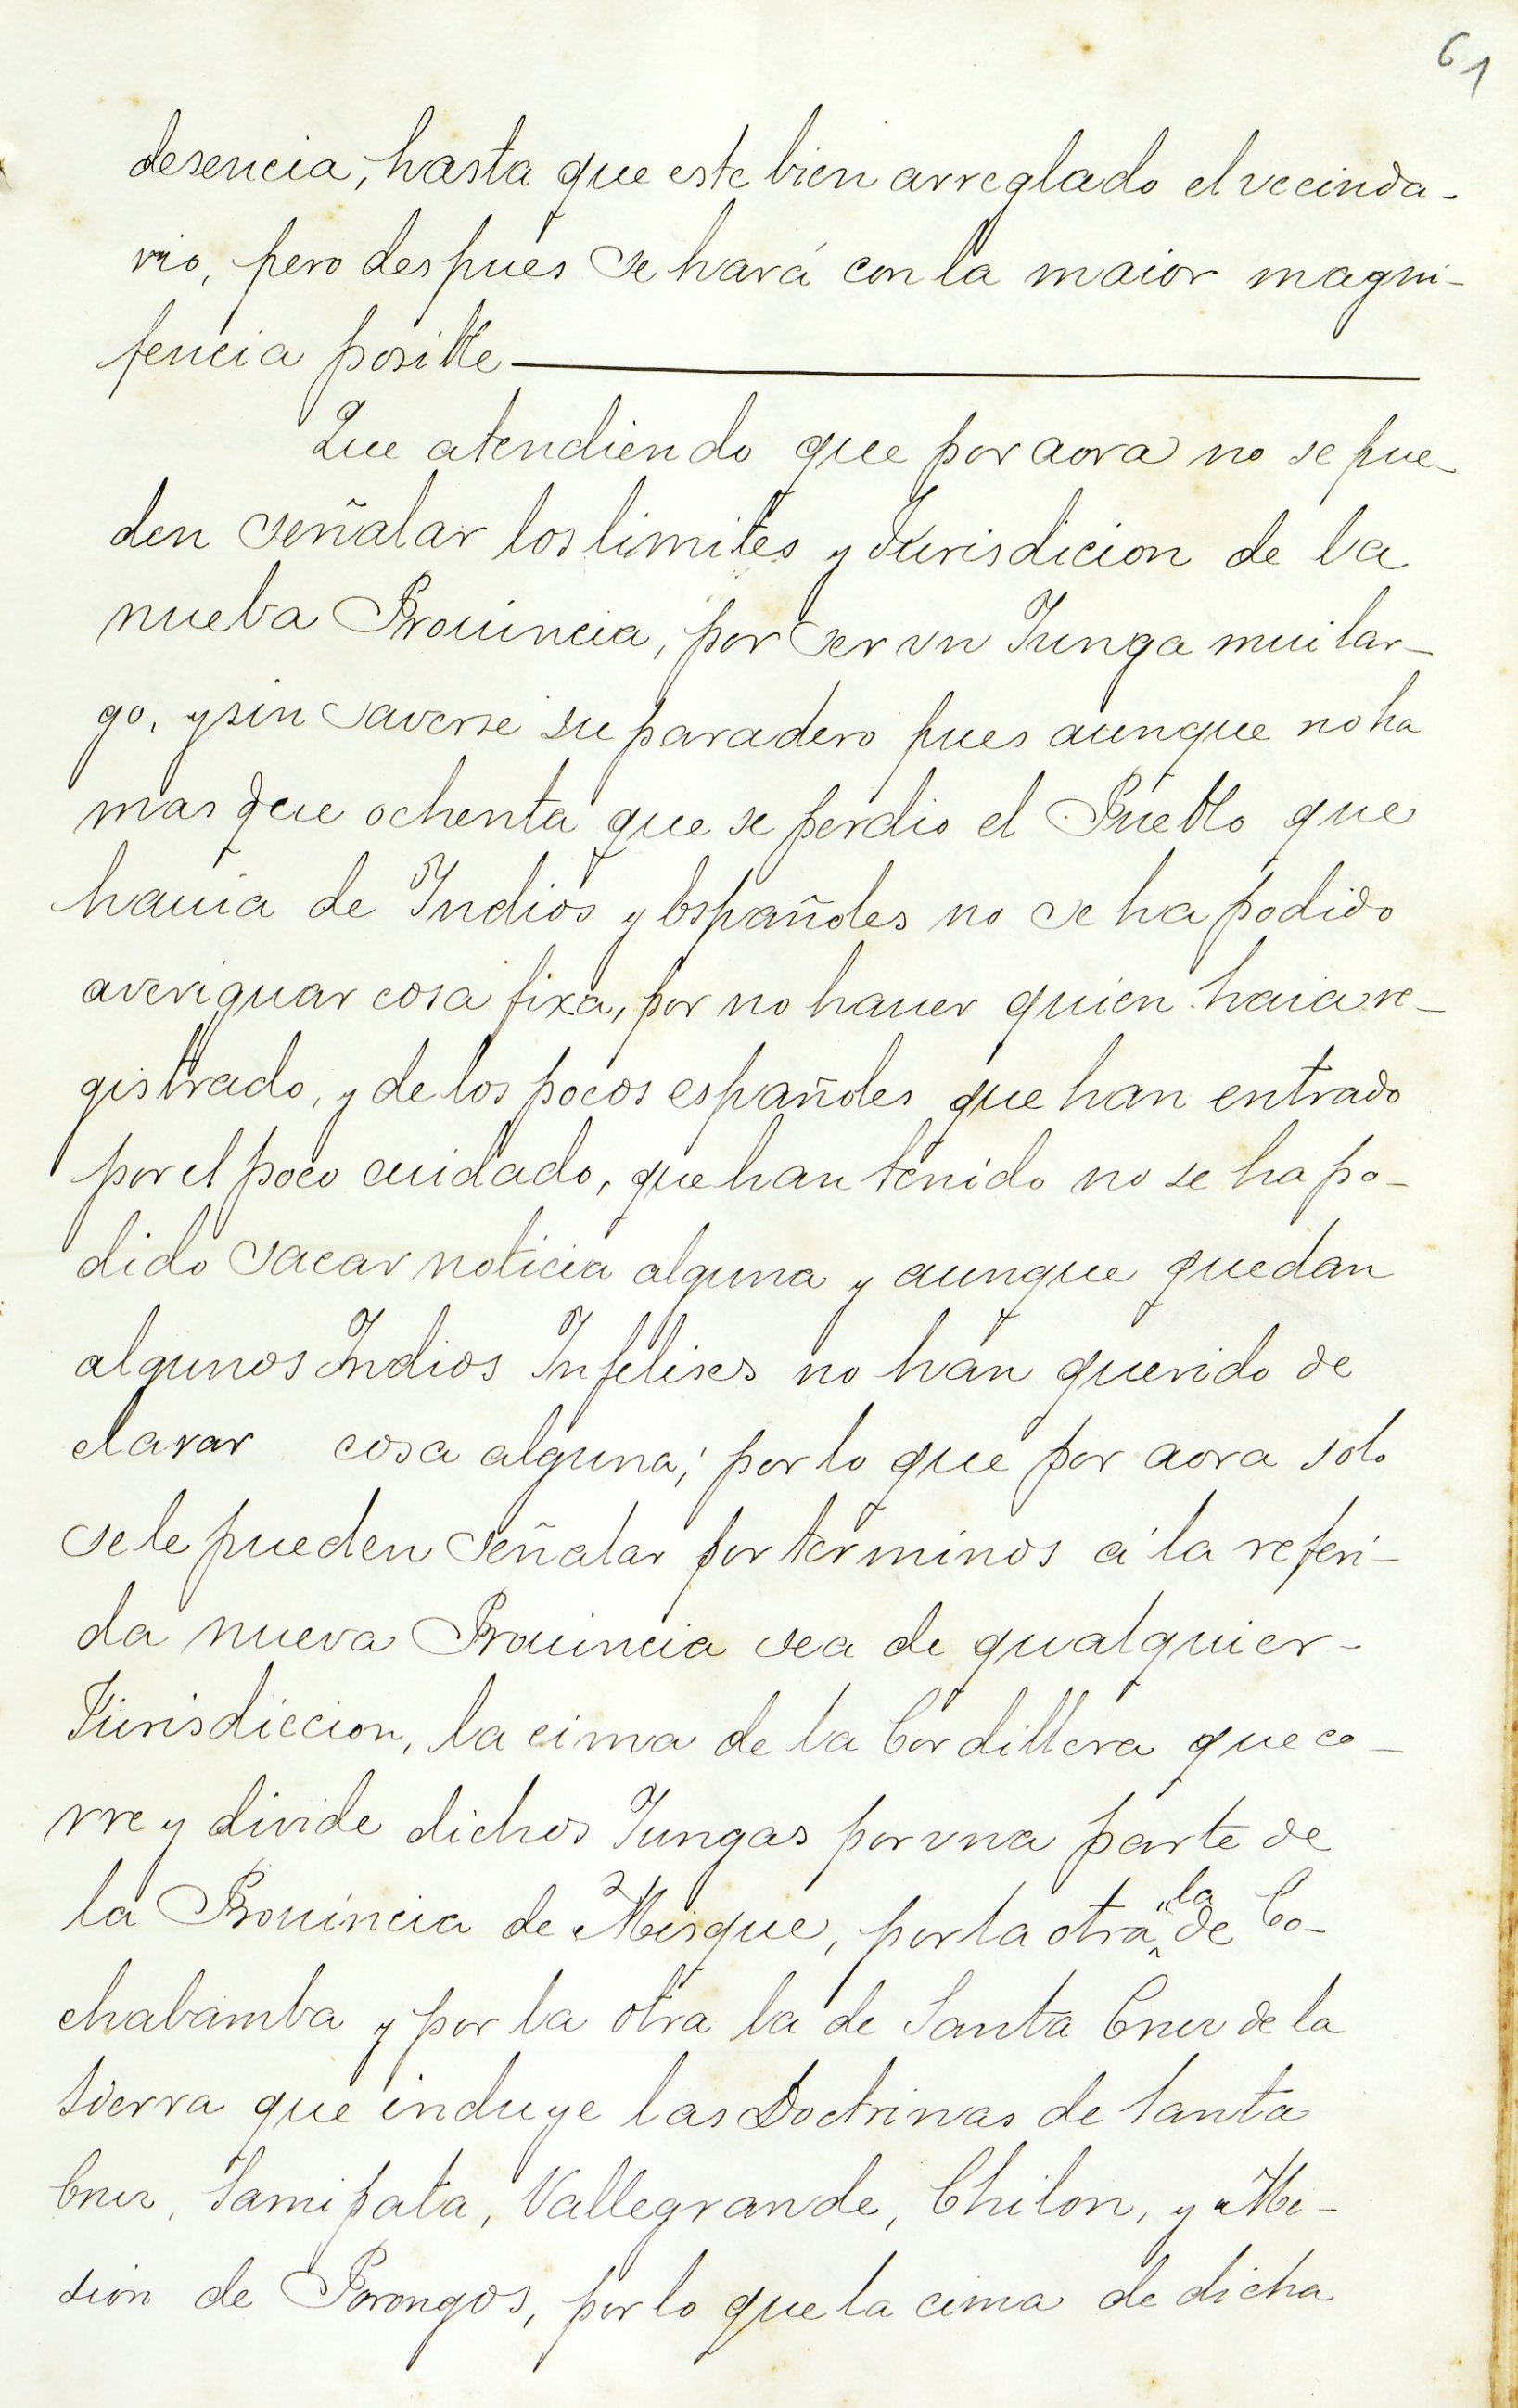 61
desencia, hasta que este bien arreglado el vecinda-
rio, pero despues se hará con la maior magni-
fencia posible
Que atendiendo que por aora no se pue-
den señalar los limites y Jurisdicion de la
nueba Prouincia, por ser vn Yunga mui lar-
go, y sin saverse su paradero pues aunque no ha
mas que ochenta que se perdio el Pueblo que
hauia de Indios y Españoles no se ha podido
averiguar cosa fixa, por no hauer quien haia re-
gistrado, y de los pocos españoles que han entrado
por el poco cuidado, que han tenido no se ha po-
dido sacar noticia alguna y aunque quedan
algunos Indios Infelises no han querido de
clarar cosa alguna; por lo que por aora solo
se le pueden señalar por terminos á la referi-
da nueva Prouincia sea de qualquier-
Jurisdiccion, la cima de la Cordillera que co-
rre y divide dichos Yungas por vna parte de
la Prouincia de Misque, por la otra "la de Co-
chabamba y por la otra la de Santa Cruz de la
Sierra que incluye las Doctrinas de Santa
Cruz, Samipata, Vallegrande, Chilon, y Mi-
sion de Porongos, por lo que la cima de dicha